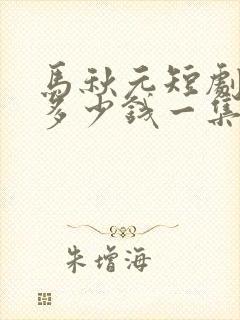 馬秋元短劇
多少錢一集
朱增海